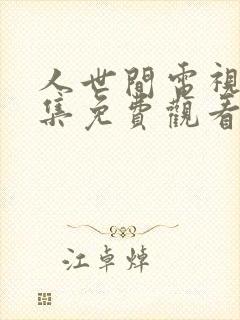 人世間電視
集免費觀看
江卓焯